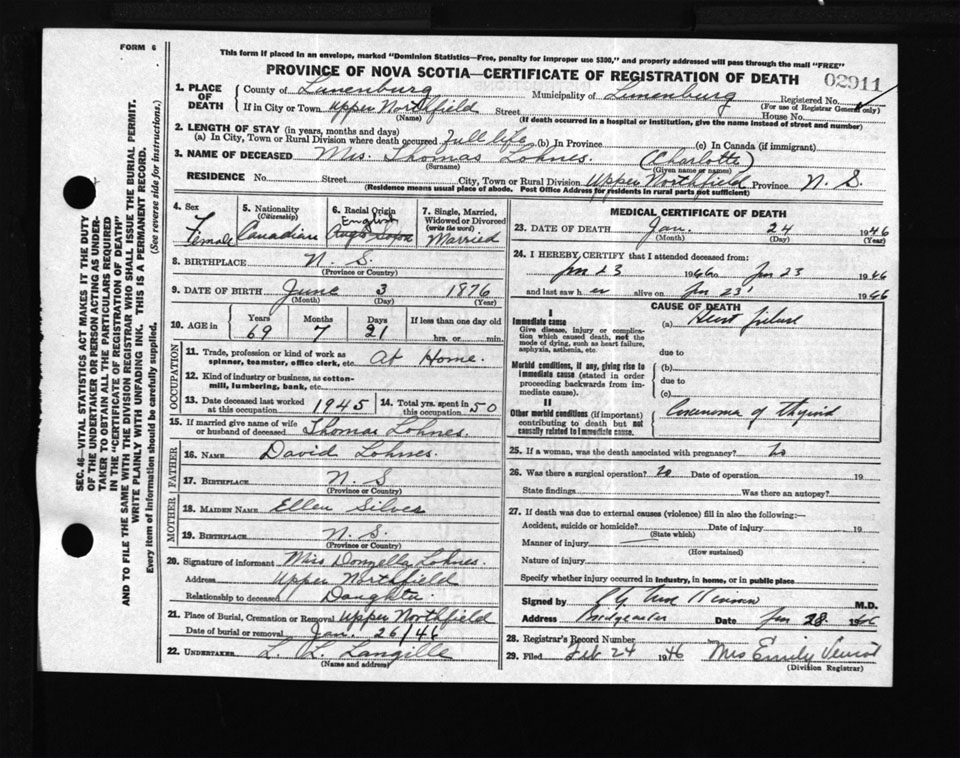 FORM 6
This form if placed in an envelope, marked "Dominion Statistics—Free, penalty for improper use $300," and properly addressed will pass through the mail "FREE"
PROVINCE OF NOVA SCOTIA—CERTIFICATE OF REGISTRATION OF DEATH
02911
1. PLACE OF DEATH County of Lunenburg Municipality of Lunenburg Registered No.
(For use of Registrar General only)
If in City or Town Upper Northfield Street House No.
(Name) (If death occurred in a hospital or institution, give the name instead of street and number)
2. LENGTH OF STAY (in years, months and days)
(a) In City, Town or Rural Division where death occurred Full life (b) In Province (c) In Canada (if immigrant)
3. NAME OF DECEASED Mrs. Thomas Lohnes. (Charlotte)
(Surname) (Given name or names)
RESIDENCE No. Street City, Town or Rural Division Upper Northfield Province N. S.
(Residence means usual place of abode. Post Office Address for residents in rural parts not sufficient)
4. Sex Female
5. Nationality (Citizenship) Canadian
6. Racial Origin English
7. Single, Married, Widowed or Divorced (write the word) Married
8. BIRTHPLACE N. S.
(Province or Country)
9. DATE OF BIRTH June 3 1876
(Month) (Day) (Year)
10. AGE in Years Months Days If less than one day old
69 7 21 hrs. or min.
OCCUPATION
11. Trade, profession or kind of work as spinner, teamster, office clerk, etc. At Home.
12. Kind of industry or business, as cotton-mill, lumbering, bank, etc.
13. Date deceased last worked at this occupation 1945
14. Total yrs. spent in this occupation 50
15. If married give name of wife or husband of deceased Thomas Lohnes.
FATHER
16. NAME David Lohnes.
17. BIRTHPLACE N. S
(Province or Country)
MOTHER
18. MAIDEN NAME Ellen Silver
19. BIRTHPLACE N. S.
(Province or Country)
20. Signature of informant Mrs Donnella Lohnes.
Address Upper Northfield
Relationship to deceased Daughter
21. Place of Burial, Cremation or Removal Upper Northfield
Date of burial or removal Jan. 26/46
22. UNDERTAKER L. L. Langille
(Name and address)
MEDICAL CERTIFICATE OF DEATH
23. DATE OF DEATH Jan. 24 1946
(Month) (Day) (Year)
24. I HEREBY, CERTIFY that I attended deceased from:
Jan 23 1946 to Jan 23 1946
and last saw her alive on Jan 23 1946
CAUSE OF DEATH
I
Immediate cause (a) Heart failure
Give disease, injury or complication which caused death, not the mode of dying, such as heart failure, asphyxia, asthenia, etc.
due to
Morbid conditions, if any, giving rise to immediate cause (stated in order proceeding backwards from immediate cause).
(b)
due to
(c)
II
Other morbid conditions (if important) contributing to death but not causally related to immediate cause.
Carcinoma of Thyroid
25. If a woman, was the death associated with pregnancy? No
26. Was there a surgical operation? No Date of operation 19
State findings Was there an autopsy?
27. If death was due to external causes (violence) fill in also the following:—
Accident, suicide or homicide? Date of injury 19
(State which)
Manner of injury
(How sustained)
Nature of injury
Specify whether injury occurred in industry, in home, or in public place
Signed by M.D.
Address Bridgewater Date Jan 28 1946
28. Registrar's Record Number
29. Filed Feb 24 1946 Mrs Emily
(Division Registrar)
SEC. 46—VITAL STATISTICS ACT MAKES IT THE DUTY
OF THE UNDERTAKER OR PERSON ACTING AS UNDERTAKER
TO OBTAIN ALL THE PARTICULARS REQUIRED
IN THE "CERTIFICATE OF REGISTRATION OF DEATH"
AND TO FILE THE SAME WITH THE DIVISION REGISTRAR WHO SHALL ISSUE THE BURIAL PERMIT.
WRITE PLAINLY WITH UNFADING INK. THIS IS A PERMANENT RECORD.
Every item of information should be carefully supplied. (See reverse side for instructions.)